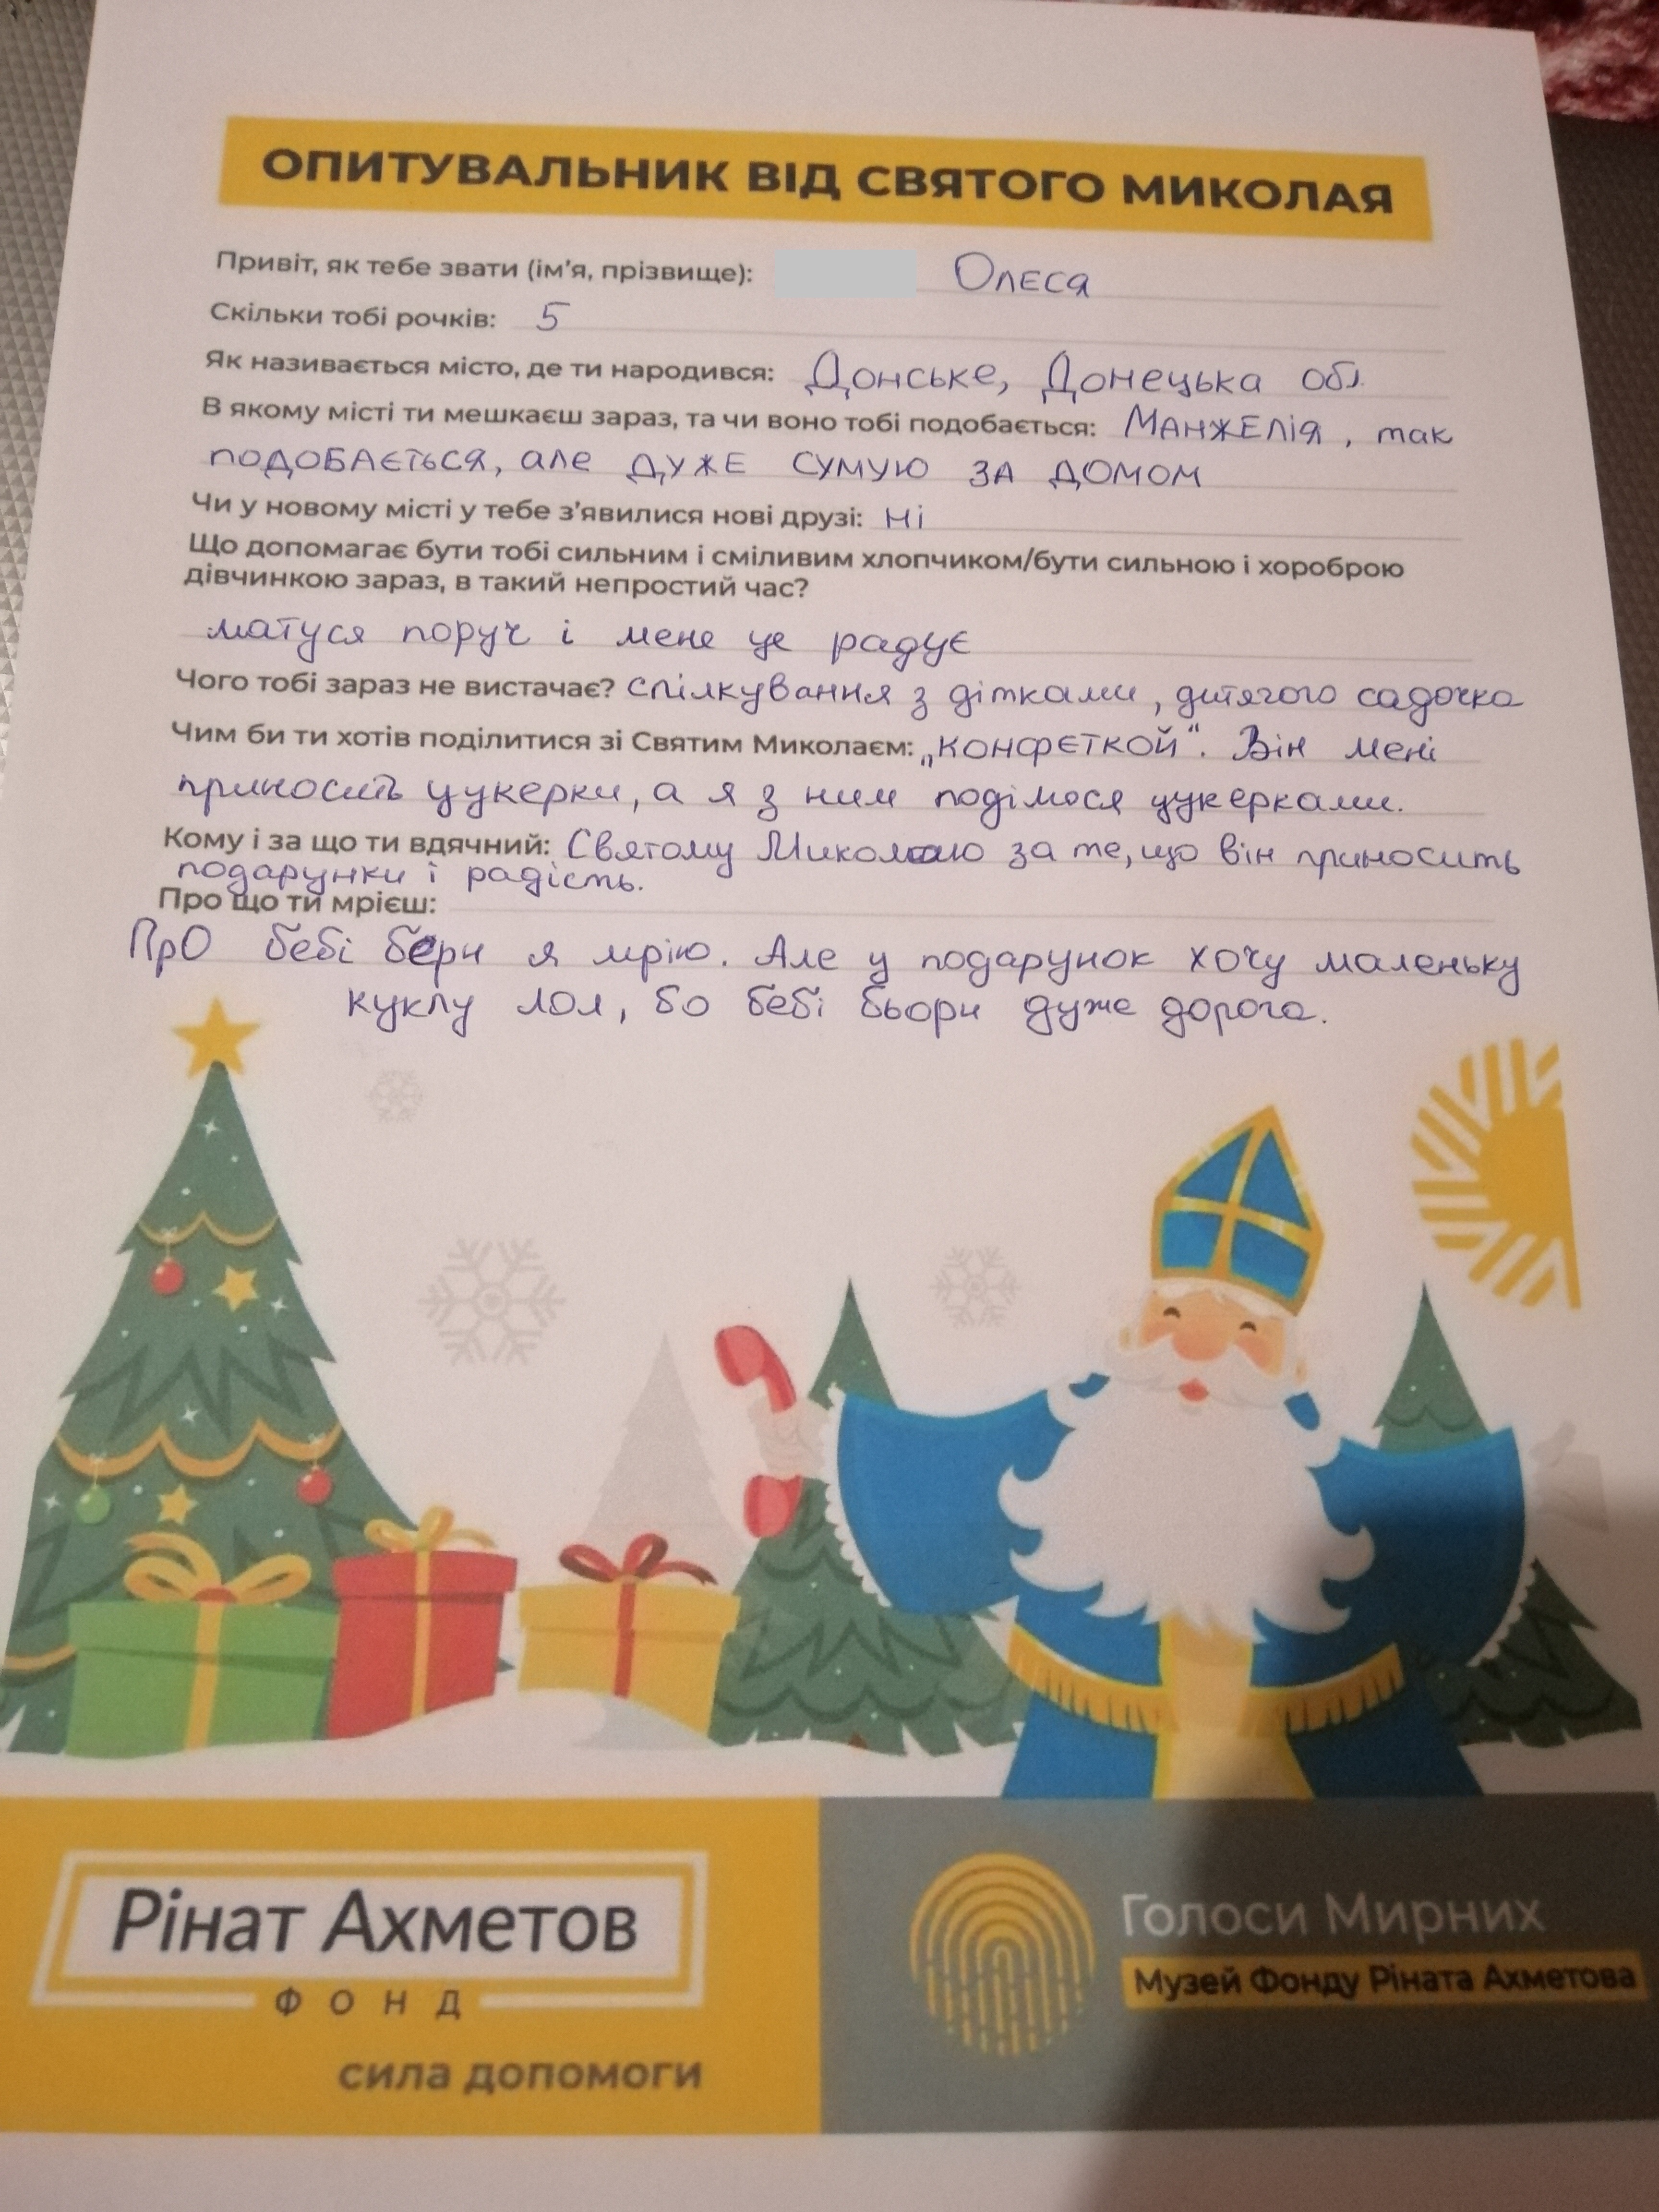 ОПИТУВАЛЬНИК ВІД СВЯТОГО МИКОЛАЯ
Привіт, як тебе звати (ім'я, прізвище): Олєся
Скільки тобі рочків: 5
Як називається місто, де ти народився: Донське, Донецька обл.
В якому місті ти мешкаєш зараз, та чи воно тобі подобається: Манжелія, так
подобається, але дуже сумую за домом
Чи у новому місті у тебе з'явилися нові друзі: Ні
Що допомагає бути тобі сильним і сміливим хлопчиком/бути сильною і хороброю
дівчинкою зараз, в такий непростий час?
матуся поруч і мене це радує
Чого тобі зараз не вистачає? спілкування з дітками, дитячого садочка
Чим би ти хотів поділитися зі Святим Миколаєм: „конфєткой". Він мені
приносить цукерки, а я з ним поділюся цукерками.
Кому і за що ти вдячний: Святому Миколаю за те, що він приносить
подарунки і радість.
Про що ти мрієш:
Про бебі берн я мрію. Але у подарунок хочу маленьку
куклу лол, бо бебі бьорн дуже дорога.
Рінат Ахметов
ФОНД
сила допомоги
Голоси Мирних
Музей Фонду Ріната Ахметова